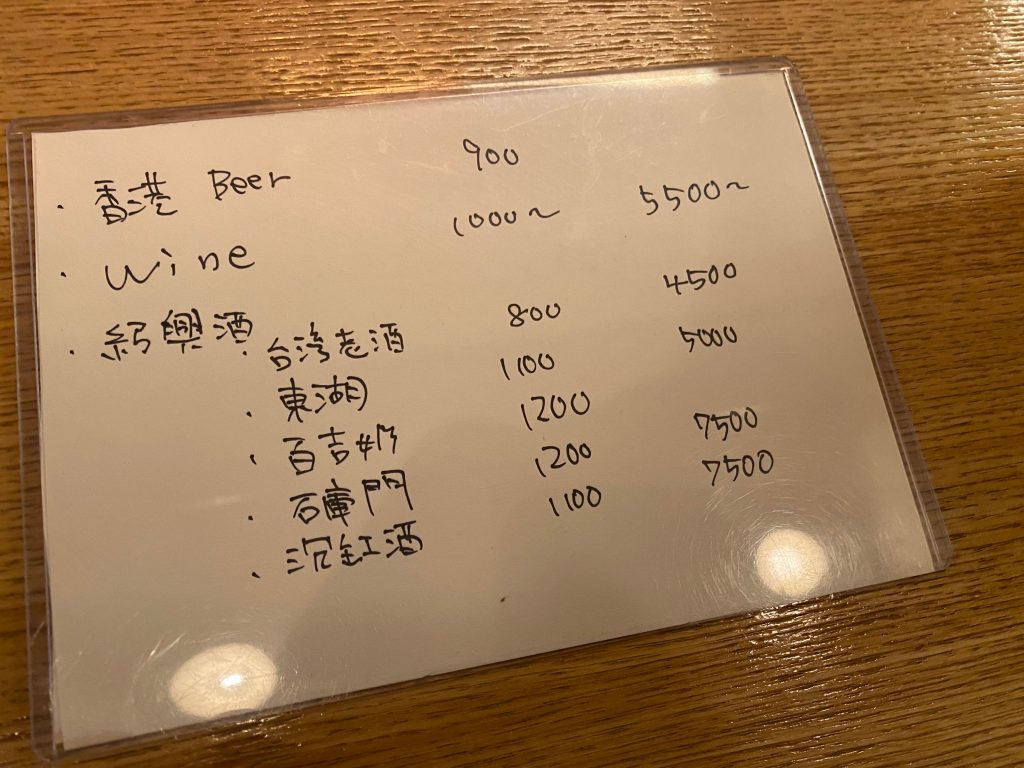 ・香港 Beer 900
・Wine 1000～ 5500～
・紹興酒
・台湾老酒 800 4500
・東湖 1100 5000
・百吉奶 1200
・石庫門 1200 7500
・沉缸酒 1100 7500